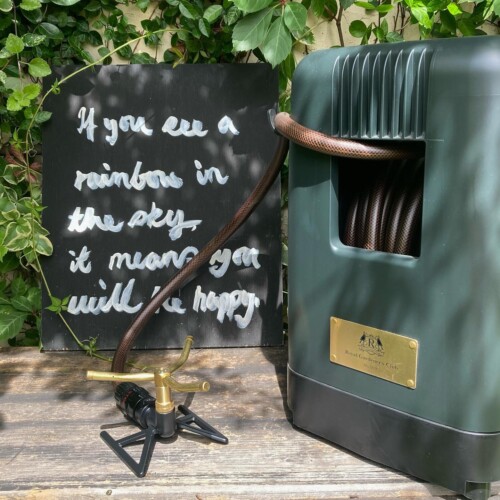 If you see a
rainbow in
the sky
it means you
will be happy.
R
Royal Gardener's Club